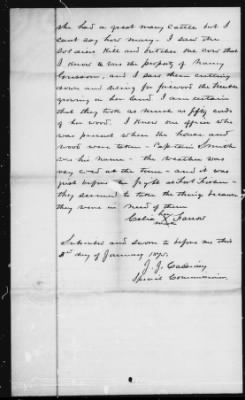 she had a great many cattle but I
cant say how many. I saw the
soldiers kill and butcher one cow that
I know to was the property of Nancy
and I saw them cutting
down and using for firewood the timber
growing on her land. I am certain
that they took as much as fifty cords
of her wood. I knew one officer who
was present when the horse and
wood were taken - Captain Smith
was his name - the weather was
very cold at the time - and it was
just before the fight at Fort Fisher -
they seemed to take the things because
they were in need of them
her
Celia X Farrow
mark
Subscribed and sworn to before me this
2nd day of January 1875.
J. J.
Special Commissioner